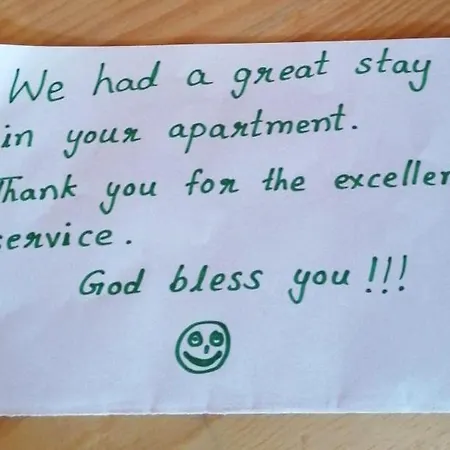 We had a great stay
in your apartment.
Thank you for the excellen
service.
God bless you !!!